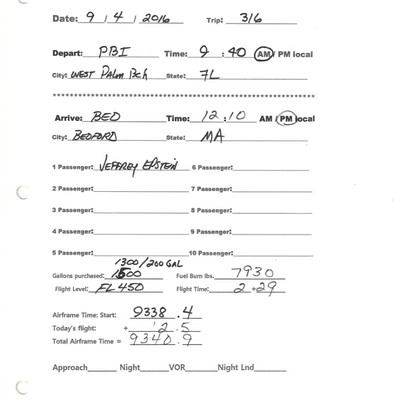 Date: 9 / 4 / 2016 Trip: 316
Depart: PBI Time: 9 : 40 AM / PM local
City: WEST Palm Bch State: FL
************************************************************
Arrive: BED Time: 12 : 10 AM / PM local
City: BEDFORD State: MA
1 Passenger: JEFFREY EPSTEIN 6 Passenger:
2 Passenger: 7 Passenger:
3 Passenger: 8 Passenger:
4 Passenger: 9 Passenger:
5 Passenger: 10 Passenger:
1300/200 GAL
Gallons purchased: 1500 Fuel Burn lbs. 7930
Flight Level: FL450 Flight Time: 2 + 29
Airframe Time: Start: 9338 . 4
Today's flight: + 2 . 5
Total Airframe Time = 9340 . 9
Approach Night VOR Night Lnd